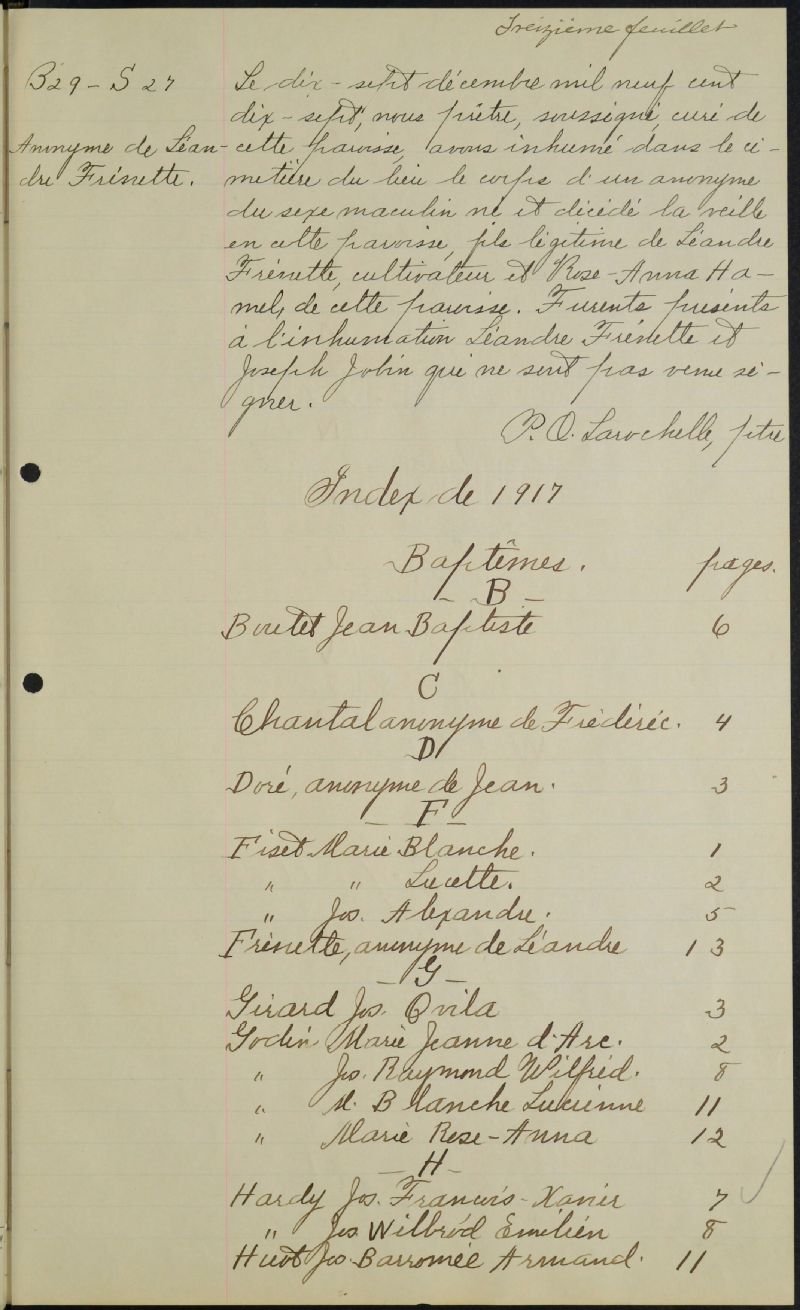 Treizième feuillet
B29 - S 27
Anonyme de Léan-
dre Frénette.
Le dix-sept décembre mil neuf cent
dix-sept, nous prêtre, soussigné, curé de
cette paroisse, avons inhumé dans le ci-
metière du lieu le corps d'un anonyme
du sexe masculin né et décédé la veille
en cette paroisse, fils légitime de Léandre
Frénette, cultivateur et Rose-Anna Ha-
mel, de cette paroisse. Furents présents
à l'inhumation Léandre Frénette et
Joseph Jobin qui ne sont pas venu si-
gner.
P. O. Larochelle, ptre
Index de 1917
Baptêmes. pages.
- B -
Boutet Jean Baptiste 6
C
Chantal anonyme de Frédéric. 4
D
Doré, anonyme de Jean. 3
- F -
Fiset Marie Blanche. 1
" " Lucette. 2
" Jos. Alexandre. 5
Frénette, anonyme de Léandre 13
- G -
Girard Jos. Ovila 3
Godin Marie Jeanne d'Arc. 2
" Jos. Raymond Wilfrid. 8
" M. Blanche Lucienne 11
" Marie Rose-Anna 12
- H -
Hardy Jos. François-Xavier 7
" Jos Wilbrod Emilien 8
Huot Jos. Barromée Armand. 11